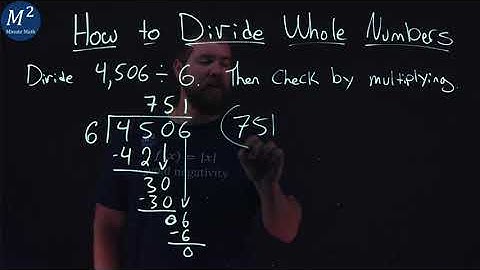 M²
Minute Math
How to Divide Whole Numbers
Divide 4,506 ÷ 6. Then check by multiplying.
751
6 4506
-42
30
-30
06
-6
0
(751
(x) = |x|
negativity